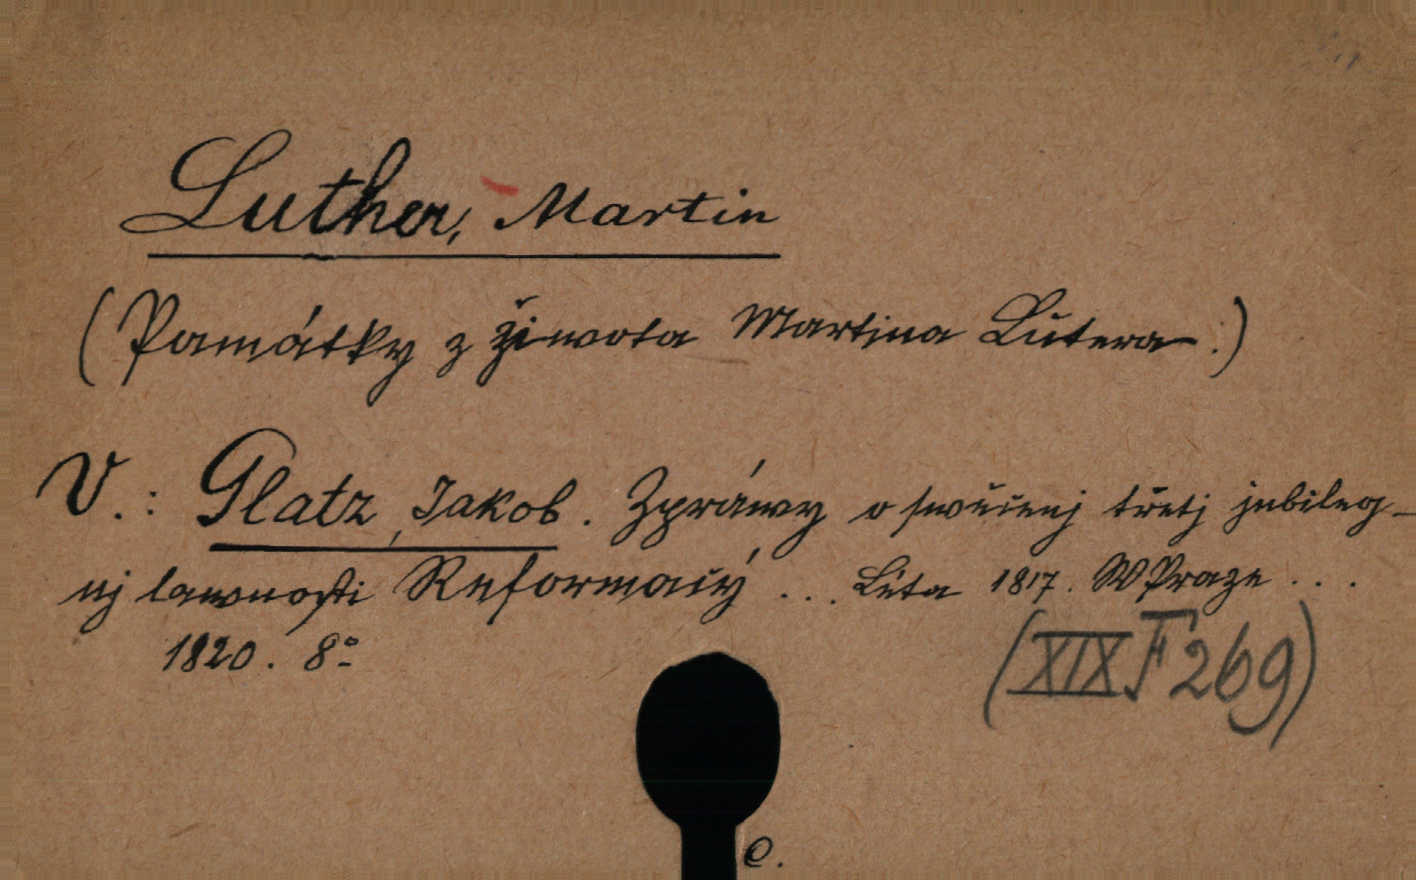 Luther, Martin
(Památky z žiwota Martina Lutera.)
V.: Glatz, Jakob. Zpráwy o swěcenj třetj jubileg-
nj lawnosti Reformacý ... Léta 1817. W Praze ...
1820. 8°
(XIX F 269)
c.